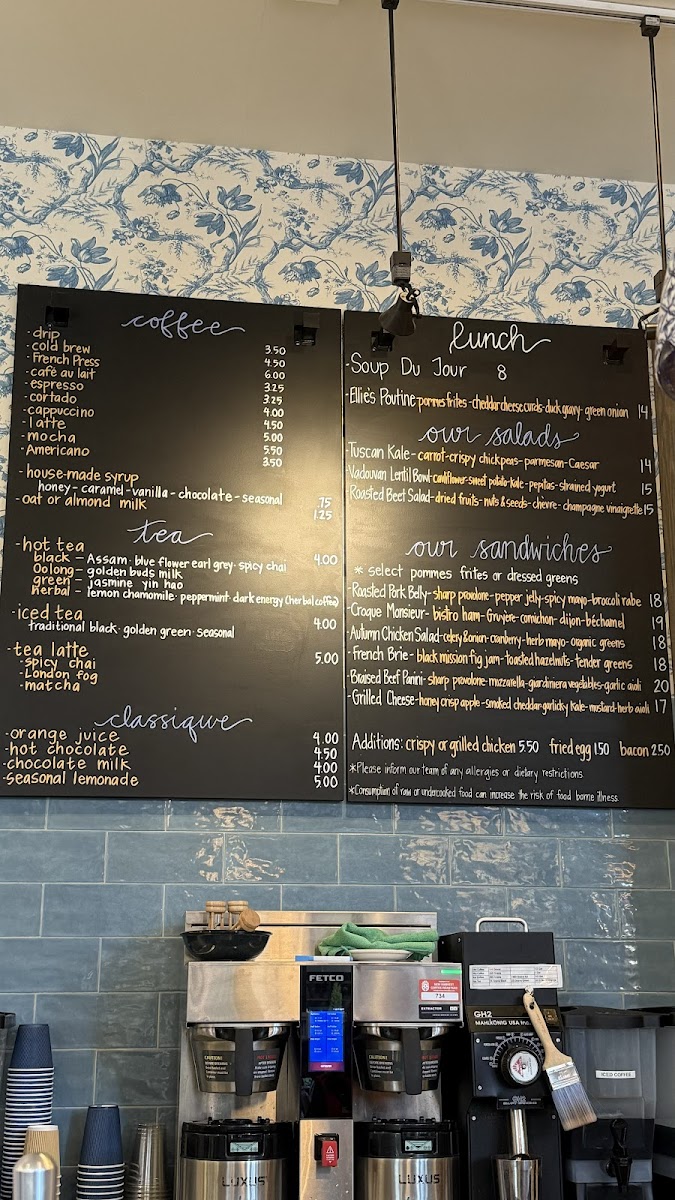 coffee
- drip 3.50
- cold brew 4.50
- French Press 6.00
- café au lait 3.25
- espresso 3.25
- cortado 4.00
- cappuccino 4.50
- latte 5.00
- mocha 5.50
- Americano 3.50
- house-made syrup .75
honey - caramel - vanilla - chocolate - seasonal
- oat or almond milk 1.25
tea
- hot tea 4.00
black - Assam · blue flower earl grey · spicy chai
Oolong - golden buds milk
green - jasmine yin hao
herbal - lemon chamomile · peppermint · dark energy (herbal coffee)
- iced tea 4.00
traditional black · golden green · seasonal
- tea latte 5.00
- spicy chai
- London fog
- matcha
classique
- orange juice 4.00
- hot chocolate 4.50
- chocolate milk 4.00
- seasonal lemonade 5.00
lunch
- Soup Du Jour 8
- Ellie's Poutine - pommes frites - cheddar cheese curds - duck gravy - green onion 14
our salads
- Tuscan Kale - carrot - crispy chickpeas - parmesan - Caesar 14
- Vadouvan Lentil Bowl - cauliflower - sweet potato - kale - pepitas - strained yogurt 15
- Roasted Beet Salad - dried fruits - nuts & seeds - chevre - champagne vinaigrette 15
our sandwiches
* select pommes frites or dressed greens
- Roasted Pork Belly - sharp provolone - pepper jelly - spicy mayo - broccoli rabe 18
- Croque Monsieur - bistro ham - Gruyere - cornichon - dijon - béchamel 19
- Autumn Chicken Salad - celery & onion - cranberry - herb mayo - organic greens 18
- French Brie - black mission fig jam - toasted hazelnuts - tender greens 18
- Braised Beef Panini - sharp provolone - mozzarella - giardiniera vegetables - garlic aioli 20
- Grilled Cheese - honey crisp apple - smoked cheddar - garlicky kale - mustard - herb aioli 17
Additions: crispy or grilled chicken 5.50 fried egg 1.50 bacon 2.50
*Please inform our team of any allergies or dietary restrictions
*Consumption of raw or undercooked food can increase the risk of food borne illness.
FETCO
734
EXTRACTOR
CAUTION
CAUTION
LUXUS
LUXUS
GH2
MAHLKÖNIG USA Inc.
ICED COFFEE